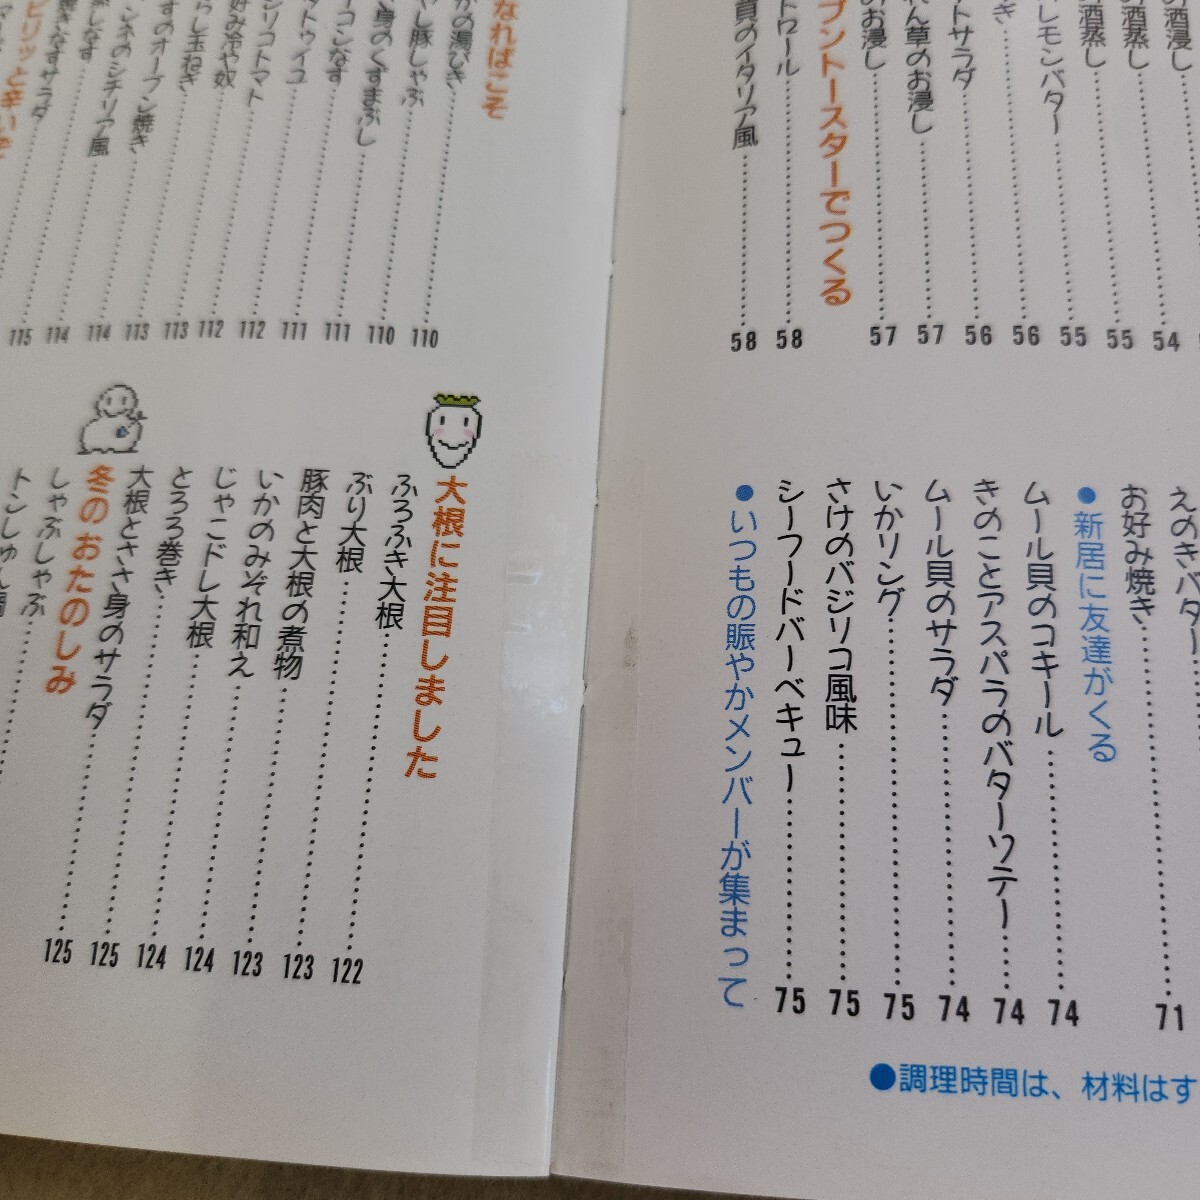 の酒蒸し……54
酒蒸し……55
酒蒸し……55
レモンバター……56
き……56
トサラダ……57
れん草のお浸し……57
のお浸し
ブントースターでつくる
トロール……58
貝のイタリア風……58
えのきバター
お好み焼き……71
●新居に友達がくる
ムール貝のコキール……74
きのことアスパラのバターソテー……74
ムール貝のサラダ……74
いかリング……75
さけのバジリコ風味……75
シーフードバーベキュー……75
●いつもの賑やかメンバーが集まって
●調理時間は、材料はす
なればこそ
かの湯びき……110
やし豚しゃぶ……110
身のくずまぶし……111
ーコンなす……111
タトゥイユ……112
シリコトマト……112
好み冷や奴……113
らし玉ねぎ……113
すのオーブン焼き……114
ンネのシチリア風……114
蒸しなす……115
焼きなすサラダ
ピリッと辛いぞ
大根に注目しました
ふろふき大根……122
ぶり大根……123
豚肉と大根の煮物……123
いかのみぞれ和え……124
じゃこドレ大根……124
とろろ巻き……125
大根とささ身のサラダ……125
冬のおたのしみ
しゃぶしゃぶ
トンしゅん鍋